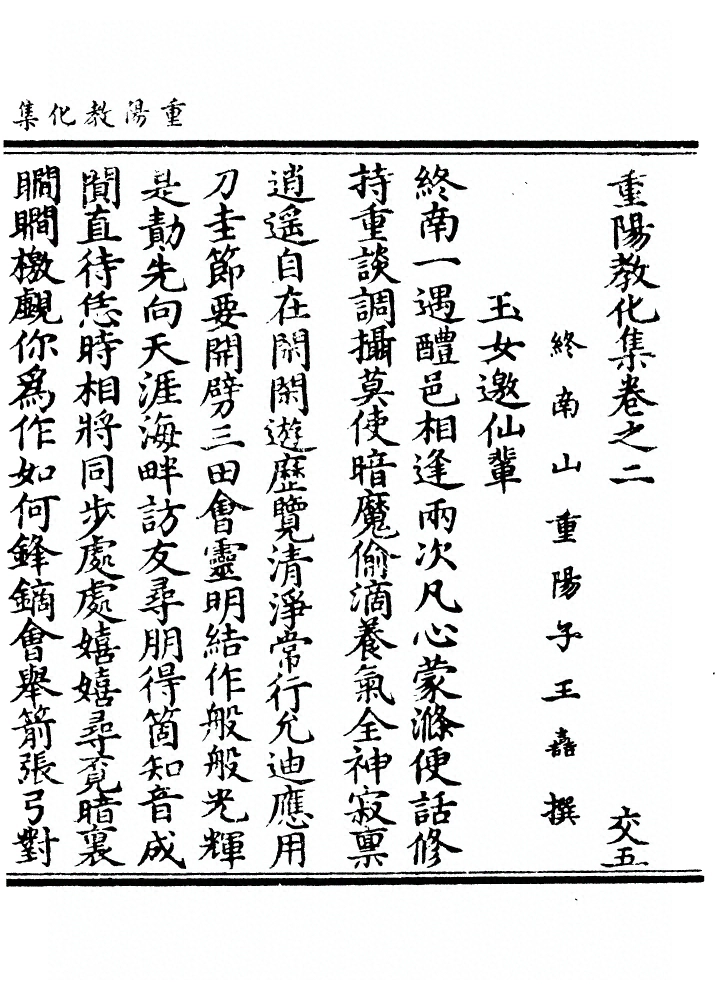 重陽教化集
重陽教化集卷之二　交五
終南山重陽子王嚞撰
玉女邀仙輩
終南一遇醴邑相逢兩次凡心蒙滌便話修
持重談調攝莫使暗魔偷滴養氣全神寂禀
逍遥自在閑閑遊歷覽清淨常行允迪應用
刀圭節要開劈三田會靈明結作般般光輝
是勣先向天涯海畔訪友尋朋得箇知音成
閴直待恁時相將同步處處嬉嬉尋覔暗裏
瞷瞷檄覷你爲作如何鋒鏑會舉箭張弓對